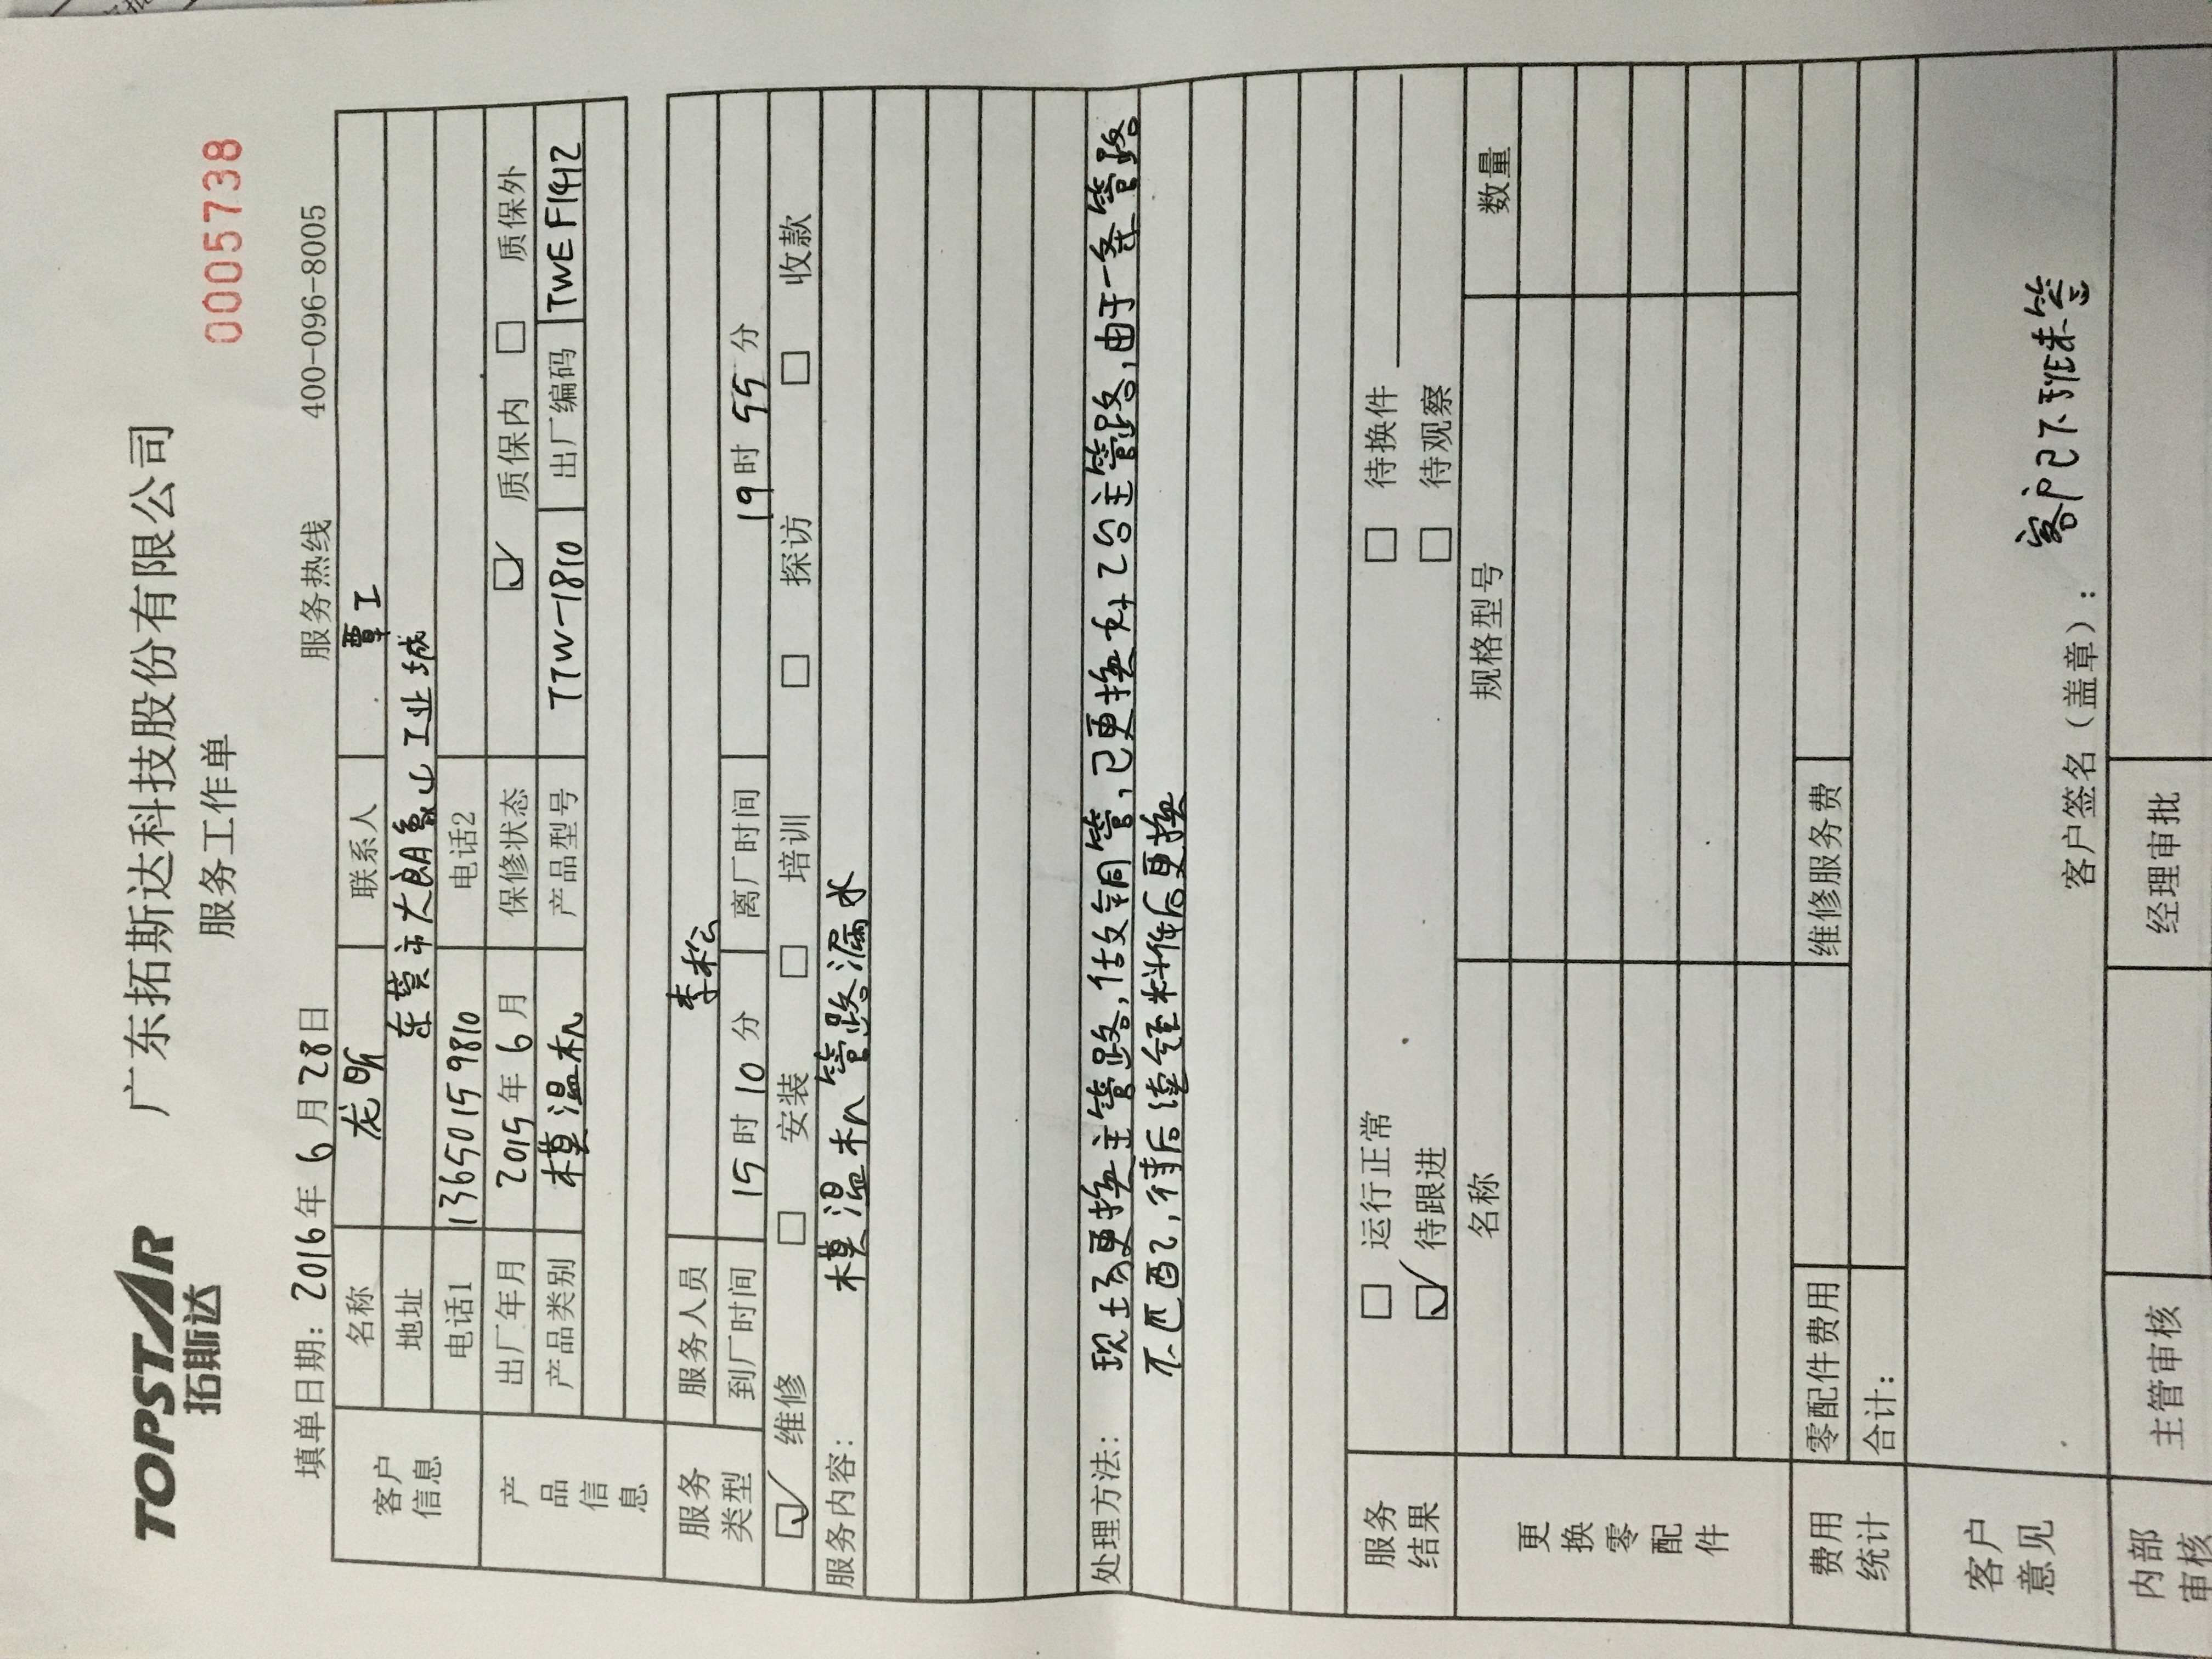 TOPSTAR 拓斯达
广东拓斯达科技股份有限公司
服务工作单
0005738
填单日期: 2016年 6月 28日 服务热线 400-096-8005
客户信息
名称 龙昕 联系人 覃工
地址 东莞市大朗象山工业城
电话1 13650159810 电话2
产品信息
出厂年月 2015年 6月 保修状态 ☑ 质保内 □ 质保外
产品类别 模温机 产品型号 TTW-1810 出厂编码 TWEF1412
服务类型
服务人员 李松
到厂时间 15时 10分 离厂时间 19时 55分
☑ 维修 □ 安装 □ 培训 □ 探访 □ 收款
服务内容: 模温机管路漏水
处理方法: 现场更换主管路, 铜管, 已更换好2台主管路, 由于一条管路
不匹配, 待后续料件后更换
服务结果
□ 运行正常 □ 待换件
☑ 待跟进 □ 待观察
更换零配件
名称 规格型号 数量
费用统计
零配件费用 维修服务费
合计:
客户意见
客户签名(盖章): 客户已下班未签
内部审核
主管审核 经理审批